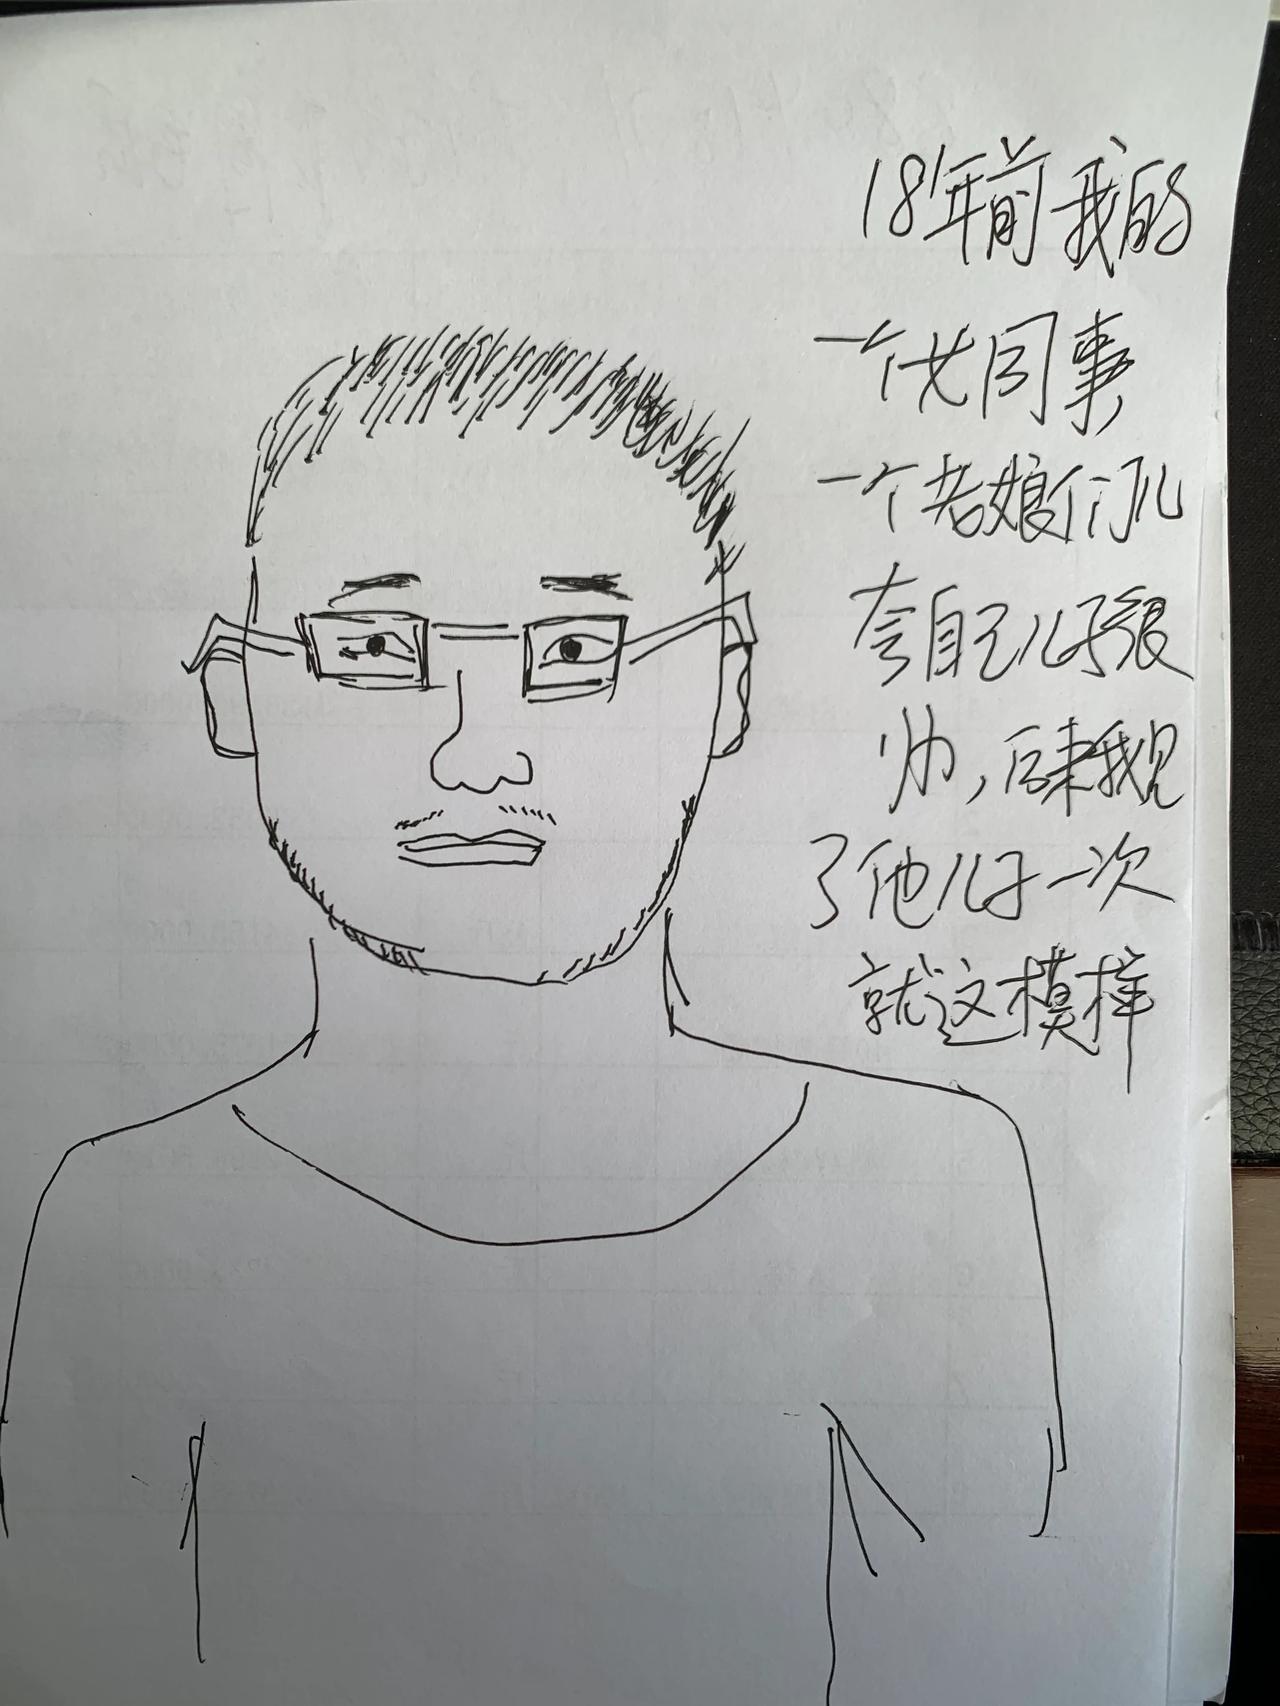 18年前我的
一个女同事
一个老娘们儿
夸自己儿子很
帅，后来我见
了他儿子一次
就这模样